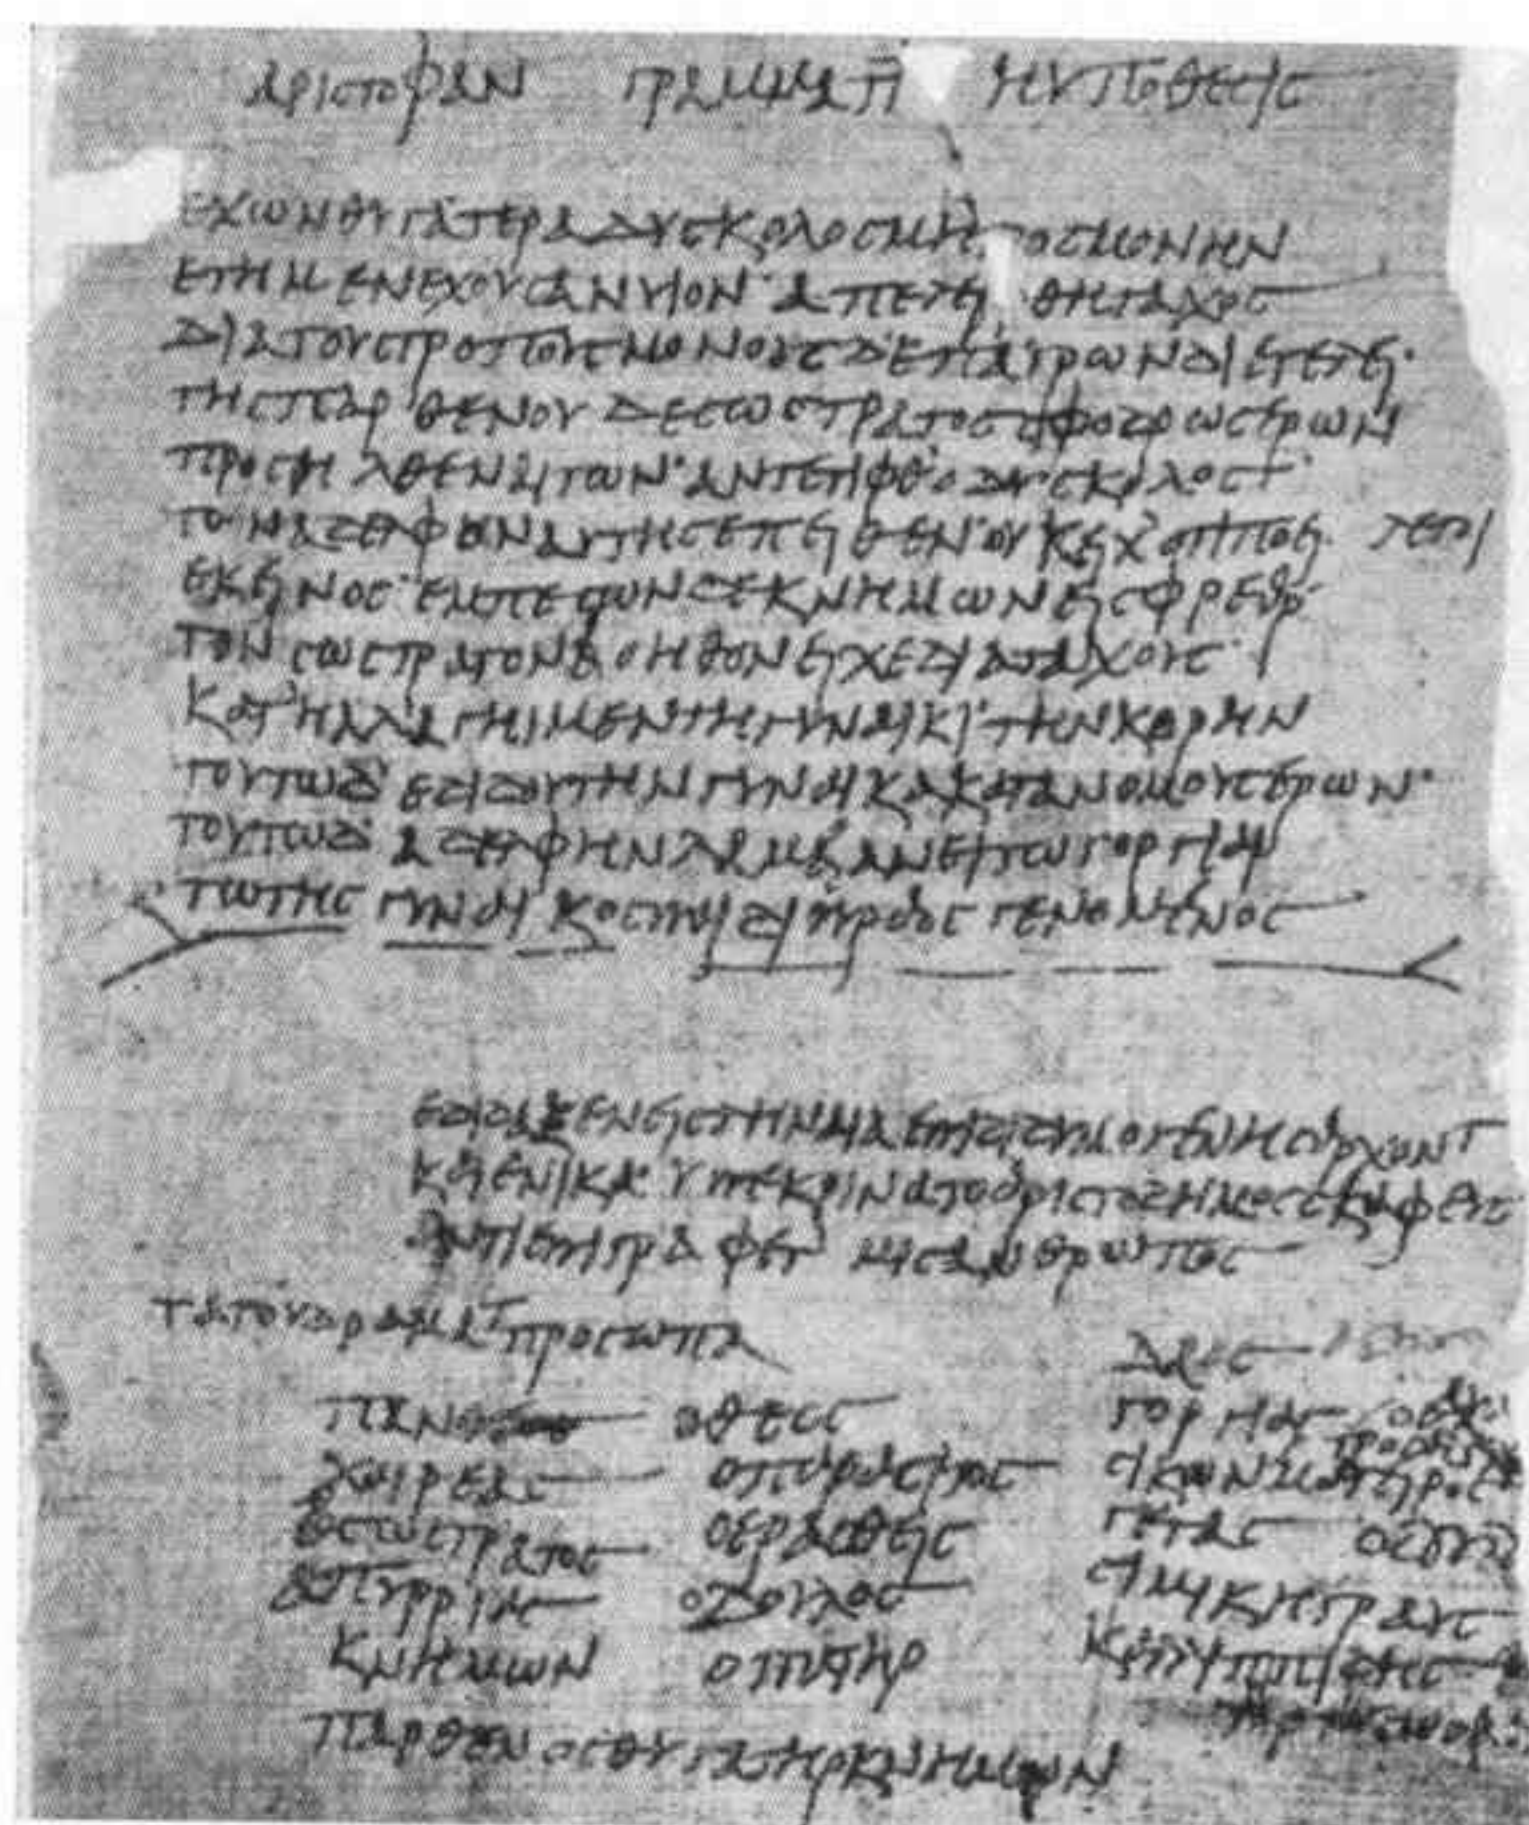 αριστοφαν γραμματι ηυποθεσις
εχωνθυγατεραδυσκολοσμητροσμονην
εγημενεχουσανυιον απελειφθηταχος
διατουστροπουσμονοσδεπαγρωνδιετελει
τησπαρθενουδεσωστρατοσσφοδρωσερων
προσηλθεναιτων αντεπιφθοδυσκολος
τοναδελφοναυτησεπειθεν ουκειχοτιποει λεγει
εκεινος εμπεσωνδεκνημωνεισφρεαρ
τονσωστρατονβοηθονειχεδιαταχους
κατηλλαγημεντηγυναικι τηνκορην
τουτωδ εδιδουτηνγυναικακατανομουσερων
τουτωδ αδελφηνλαμβανειτωγοργιαι
τωτης γυναικοσπαιδιπραοσγενομενος
εδιδαξενεισληναιαεπιδιδυμογενησαρχοντ
καιενικα υπεκρινατοαριστοδημοσσκαφευς
αντεπιγραφετ μισανθρωπος
ταπουδραματ προσωπα
πανο οθεος δαος
χαιρεας οπαρασιτος γοργιας
σωστρατος οερασθεις σικωνμαγειρος
πυρριας οδουλος γετας
κνημων οπατηρ σιμικηγραυς
παρθενοσθυγατηρκνημων καλλιππιδης